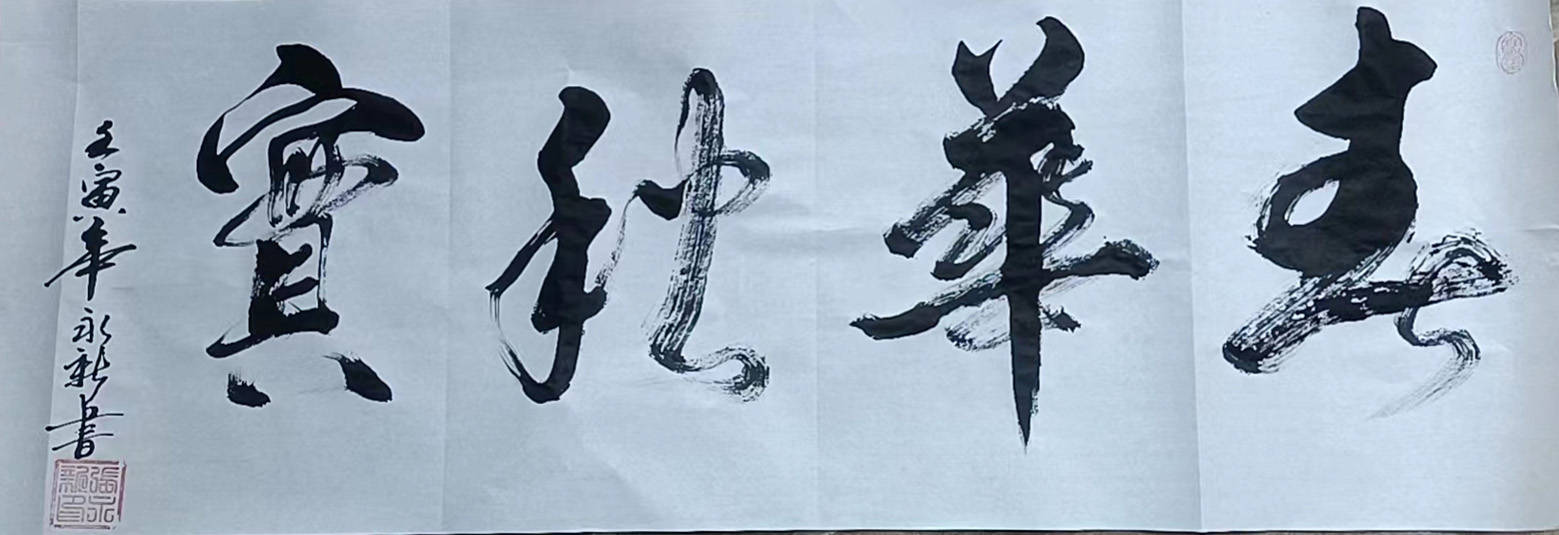 春華秋實
壬寅年 永新書
張永新印